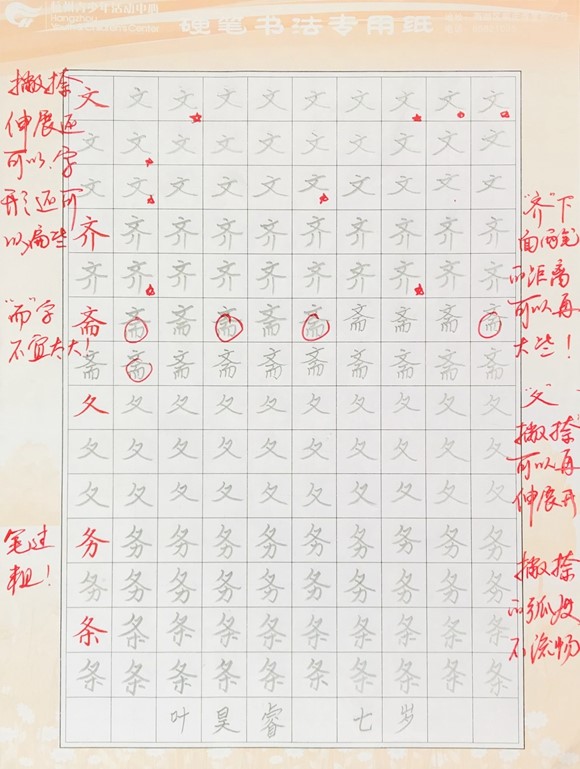 杭州青少年活动中心
硬笔书法专用纸
文文文文文文文文文文
文文文文文文文文文文
文文文文文文文文文文
齐齐齐齐齐齐齐齐齐齐
齐齐齐齐齐齐齐齐齐齐
斋斋斋斋斋斋斋斋斋斋
斋斋斋斋斋斋斋斋斋斋
夂夂夂夂夂夂夂夂夂夂
夂夂夂夂夂夂夂夂夂夂
夂夂夂夂夂夂夂夂夂夂
务务务务务务务务务务
务务务务务务务务务务
条条条条条条条条条条
条条条条条条条条条条
叶昊睿 七岁
撇捺
伸展还
可以,字
形还可
以扁些
"而"字
不宜太大!
笔过
粗!
"齐"下
面两笔
的距离
可以再
大些!
"夂"
撇捺
可以再
伸展开
撇捺
的弧度
不流畅